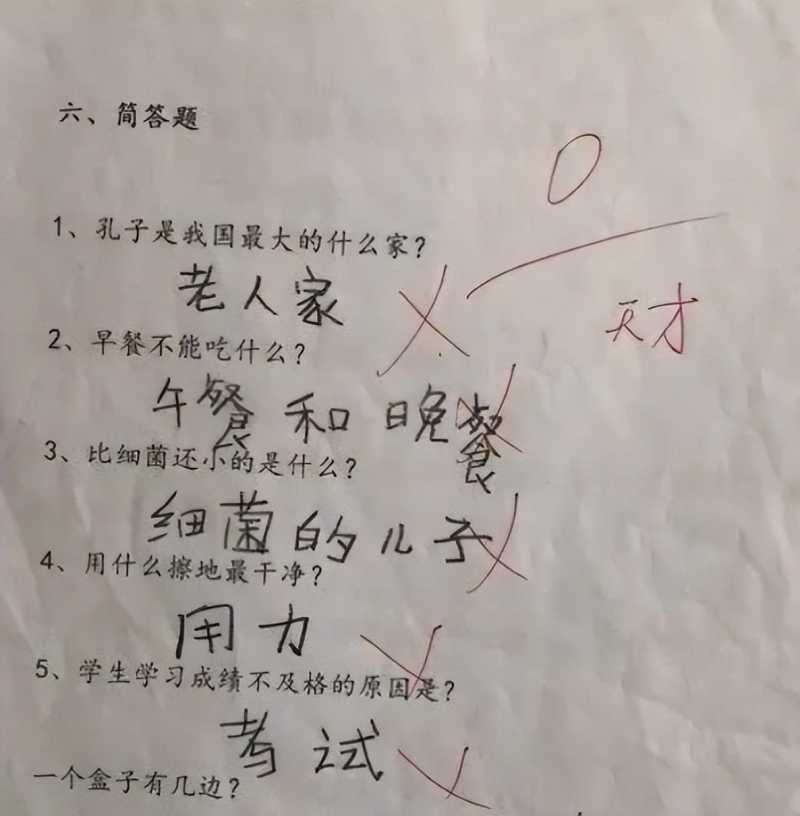 六、简答题
0
1、孔子是我国最大的什么家?
老人家
天才
2、早餐不能吃什么?
午餐和晚餐
3、比细菌还小的是什么?
细菌的儿子
4、用什么擦地最干净?
用力
5、学生学习成绩不及格的原因是?
考试
一个盒子有几边?